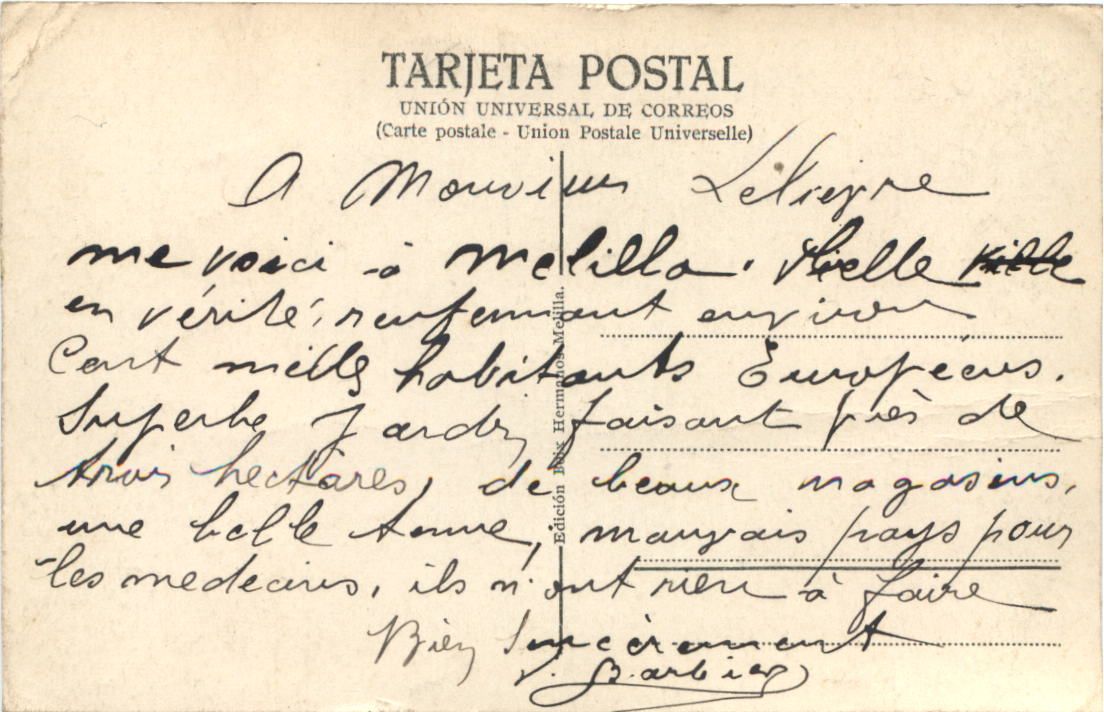 TARJETA POSTAL
UNIÓN UNIVERSAL DE CORREOS
(Carte postale - Union Postale Universelle)
A Monsieur Lelieyre
me voici à Melilla. Vielle ville
en vérité, renfermant environ
Cent mille habitants Européens.
Superbe Jardin faisant près de
trois hectares, de beaux magasins,
une belle tenue, mauvais pays pour
les medecins, ils n'ont rien à faire
Bien Sincèrement
V. Barbier
Edición Boix Hermanos Melilla.